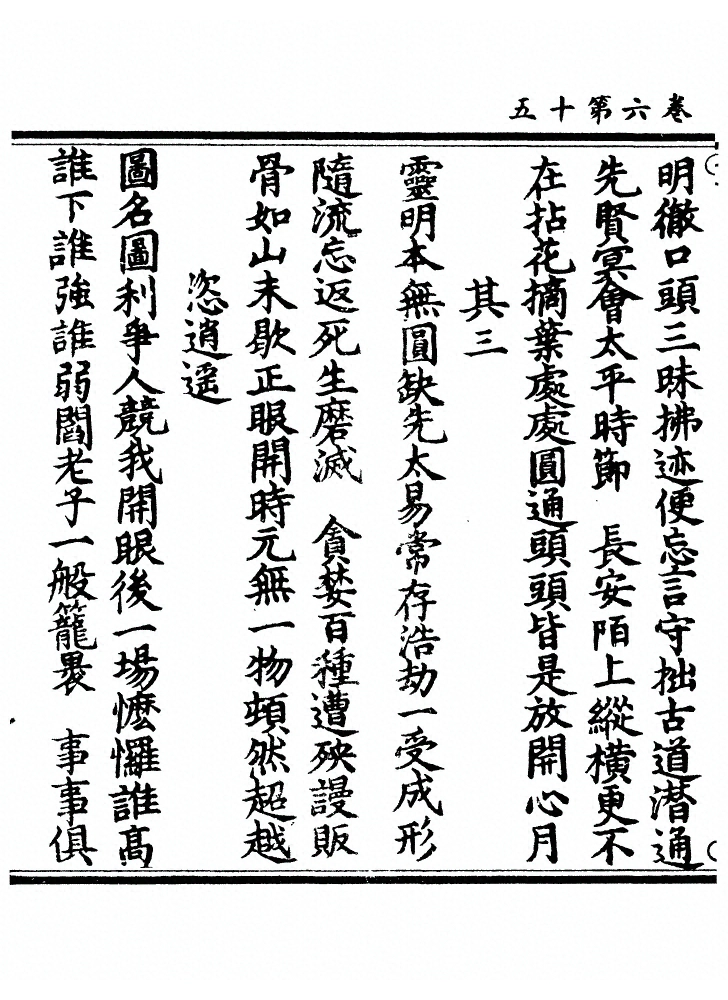 卷六第十五
明徹口頭三昧拂迹便忘言守拙古道潛通
先賢冥會太平時節　長安陌上縱橫更不
在拈花摘葉處處圓通頭頭皆是放開心月
其三
靈明本無圓缺先太易常存浩劫一受成形
隨流忘返死生磨滅　貪婪百種遭殃謾販
骨如山未歇正眼開時元無一物頓然超越
恣逍遥
圖名圖利爭人競我開眼後一場懡㦬誰髙
誰下誰強誰弱閻老子一般籠罨　事事俱